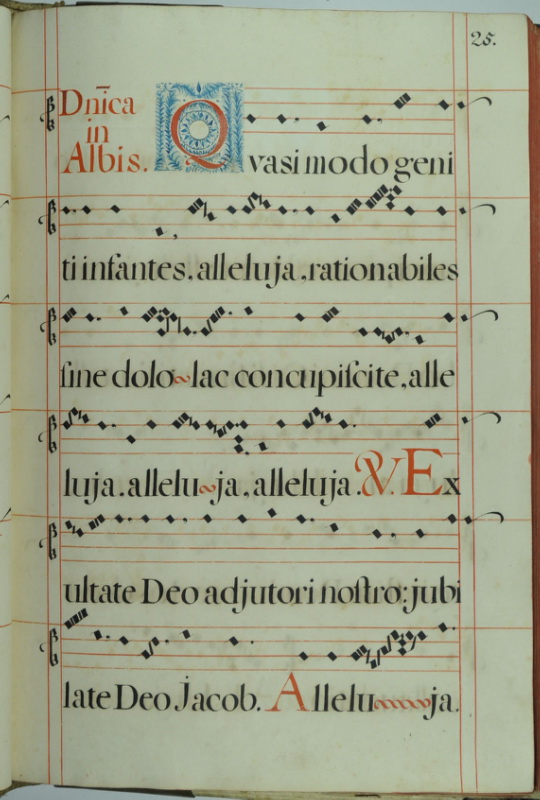 25.
Dn̄ica
in
Albis.
Qvasi modo geni
ti infantes, alleluja, rationabiles
ſine dolo lac concupiſcite, alle
luja. allelu ja, alleluja. ℣. Ex
ultate Deo adjutori noſtro: jubi
late Deo Jacob. Allelu ja.